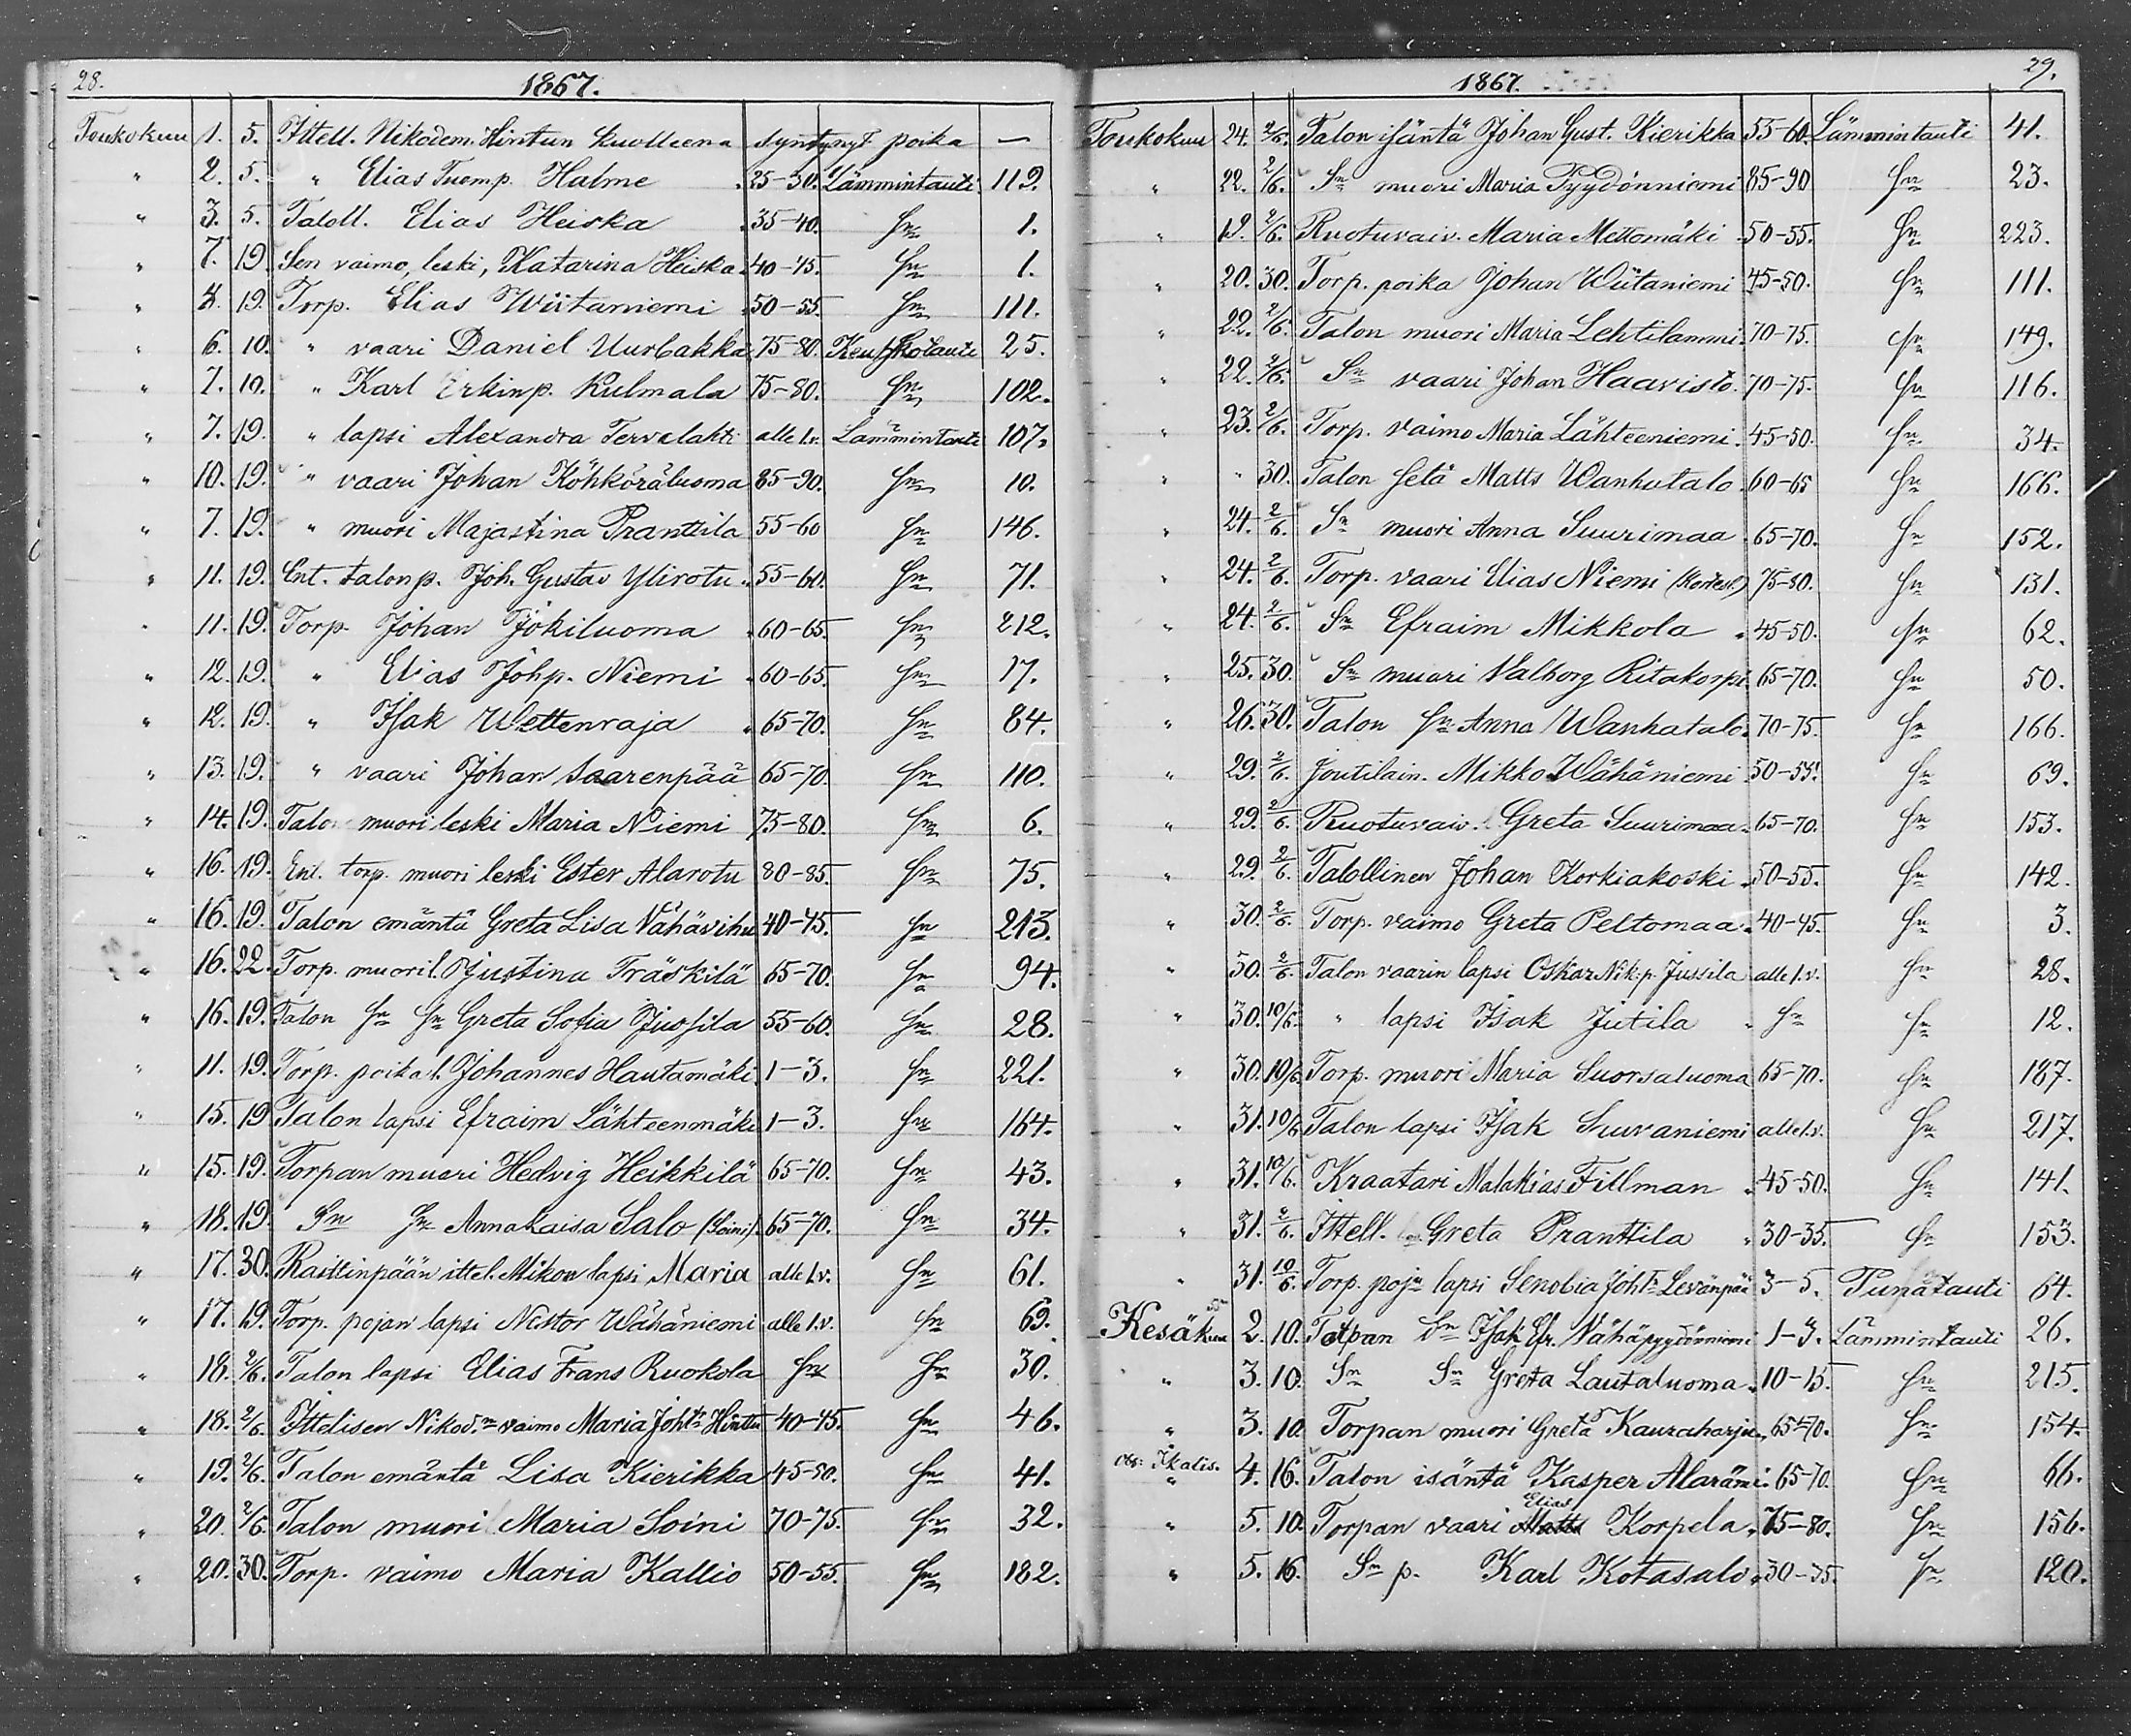 28.
1867.
Toukokuu 1. 5. Ittell. Nikodem. Hintun kuolleena syntynyt poika —
" 2. 5. " Elias Tuomp. Halme 25-30. Lämmintauti 119.
" 3. 5. Taloll. Elias Heiska 35-40. Sn 1.
" 7. 19. Sen vaimo, leski, Katarina Heiska 40-45. Sn 1.
" 8. 19. Torp. Elias Wiitaniemi 50-55. Sn 111.
" 6. 10. " vaari Daniel Uurbakka 75-80. Keuhkotauti 25.
" 7. 10. " Karl Erkinp. Kulmala 75-80. Sn 102.
" 7. 19. " lapsi Alexandra Tervalahti alle 1.v. Lämmintauti 107.
" 10. 19. " vaari Johan Köhköräluoma 85-90. Sn 10.
" 7. 19. " muori Majastina Pranttila 55-60 Sn 146.
" 11. 19. Ent. talonp. Joh. Gustav Ylirotu 55-60. Sn 71.
" 11. 19. Torp. Johan Jokiluoma 60-65. Sn 212.
" 12. 19. " Elias Johp. Niemi 60-65. Sn 17.
" 12. 19. " Isak Wettenraja 65-70. Sn 84.
" 13. 19. " vaari Johan Saarenpää 65-70. Sn 110.
" 14. 19. Talon muori leski Maria Niemi 75-80. Sn 6.
" 16. 19. Ent. torp. muori leski Ester Alarotu 80-85. Sn 75.
" 16. 19. Talon emäntä Greta Lisa Vähävihu 40-45. Sn 213.
" 16. 22. Torp. muori l. Justina Träskilä 65-70. Sn 94.
" 16. 19. Talon Sn Sn Greta Sofia Jussila 55-60. Sn 28.
" 11. 19. Torp. poika l. Johannes Hautamäki 1-3. Sn 221.
" 15. 19 Talon lapsi Efraim Lähteenmäki 1-3. Sn 164.
" 15. 19. Torpan muori Hedvig Heikkilä 65-70. Sn 43.
" 18. 19. Sn Sn Annakaisa Salo (Soini) 65-70. Sn 34.
" 17. 30. Raittinpään ittel. Mikon lapsi Maria alle 1.v. Sn 61.
" 17. 19. Torp. pojan lapsi Nestor Wähäniemi alle 1.v. Sn 69.
" 18. 2/6. Talon lapsi Elias Frans Ruokola Sn Sn 30.
" 18. 2/6. Ittelisen Nikod.n vaimo Maria Joh:tr Hinttu 40-45. Sn 46.
" 19. 2/6. Talon emäntä Lisa Kierikka 45-50. Sn 41.
" 20. 2/6. Talon muori Maria Soini 70-75. Sn 32.
" 20. 30. Torp. vaimo Maria Kallio 50-55. Sn 182.
1867.
29.
Toukokuu 24. 2/6. Talon isäntä Johan Gust. Kierikka 55-60. Lämmintauti 41.
" 22. 2/6. Sn muori Maria Pyydönniemi 85-90 Sn 23.
" 19. 2/6. Ruotuvaiv. Maria Mettomäki 50-55. Sn 223.
" 20. 30. Torp. poika Johan Wiitaniemi 45-50. Sn 111.
" 22. 2/6. Talon muori Maria Lehtilammi 70-75. Sn 149.
" 22. 2/6. Sn vaari Johan Haavisto 70-75. Sn 116.
" 23. 2/6. Torp. vaimo Maria Lähteeniemi 45-50. Sn 34.
" " 30. Talon setä Matts Wanhatalo 60-65 Sn 166.
" 24. 2/6. Sn muori Anna Suurimaa 65-70. Sn 152.
" 24. 2/6. Torp. vaari Elias Niemi 75-80. Sn 131.
" 24. 2/6. Sn Efraim Mikkola 45-50. Sn 62.
" 25. 30. Sn muori Valborg Ritakorpi 65-70. Sn 50.
" 26. 30. Talon Sn Anna Wanhatalo 70-75. Sn 166.
" 29. 2/6. Joutilain. Mikko Wähäniemi 50-55. Sn 69.
" 29. 2/6. Ruotuvaiv. Greta Suurimaa 65-70. Sn 153.
" 29. 2/6. Talollinen Johan Korkiakoski 50-55. Sn 142.
" 30. 2/6. Torp. vaimo Greta Peltomaa 40-45. Sn 3.
" 30. 2/6. Talon vaarin lapsi Oskar Nik:p. Jussila alle 1.v. Sn 28.
" 30. 10/6. " lapsi Isak Jutila Sn Sn 12.
" 30. 10/6. Torp. muori Maria Suorsaluoma 65-70. Sn 187.
" 31. 10/6 Talon lapsi Isak Suvaniemi alle 1.v. Sn 217.
" 31. 10/6. Kraatari Malakias Fillman 45-50. Sn 141.
" 31. 2/6. Ittell. Greta Pranttila 30-35. Sn 153.
" 31. 10/6. Torp. pojn lapsi Senobia Joh:tr Levänpää 3-5. Punatauti 64.
Kesäkuu 2. 10. Torpan Sn Isak Efr. Vähäpyydönniemi 1-3. Lämmintauti 26.
" 3. 10. Sn Sn Greta Lautaluoma 10-15. Sn 215.
" 3. 10. Torpan muori Greta Kauraharju 65-70. Sn 154.
obs: Ikalis. " 4. 16. Talon isäntä Kasper Alarämi 65-70. Sn 66.
" 5. 10. Torpan vaari Matts Elias Korpela 75-80. Sn 156.
" 5. 16. Sn p. Karl Kotasalo 30-35. Sn 120.